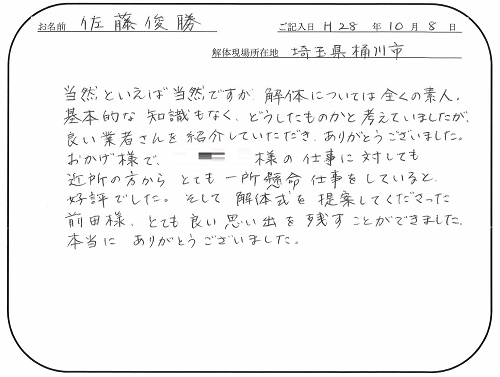 お名前 佐藤俊勝 ご記入日 H28 年 10 月 8 日
解体現場所在地 埼玉県桶川市
当然といえば当然ですが、解体については全くの素人。
基本的な知識もなく、どうしたものかと考えていましたが、
良い業者さんを紹介していただき、ありがとうございました。
おかげ様で、 様の仕事に対しても
近所の方から とても一所懸命仕事をしていると、
好評でした。そして 解体式を提案してくださった
前田様、とても良い思い出を残すことができました。
本当に ありがとうございました。